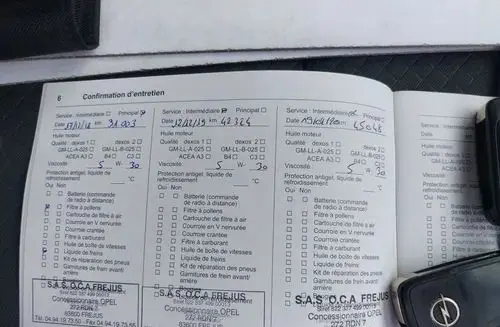 6 Confirmation d'entretien
Service : Intermédiaire Principal
Date 17/12/18 km 31 003
Huile moteur
Qualité dexos 1 dexos 2
GM-LL-A-025 GM-LL-B-025
ACEA A3 B4 C3
Viscosité 5 W- 30
Protection antigel, liquide de
refroidissement °C
Oui Non
Batterie (commande
de radio à distance)
Filtre à pollens
Cartouche de filtre à air
Courroie en V nervurée
Courroie crantée
Filtre à carburant
Huile de boîte de vitesses
Liquide de freins
Kit de réparation des pneus
Garnitures de frein avant/
arrière
S.A.S. O.C.A. FREJUS
Concessionnaire OPEL
272 RDN 7
83600 FREJUS
Tél. 04.94.19.73.50 - Fax 04.94.19.73.55
Service : Intermédiaire Principal
Date 12/12/19 km 42 324
Huile moteur
Qualité dexos 1 dexos 2
GM-LL-A-025 GM-LL-B-025
ACEA A3 B4 C3
Viscosité 5 W- 30
Protection antigel, liquide de
refroidissement °C
Oui Non
Batterie (commande
de radio à distance)
Filtre à pollens
Cartouche de filtre à air
Courroie en V nervurée
Courroie crantée
Filtre à carburant
Huile de boîte de vitesses
Liquide de freins
Kit de réparation des pneus
Garnitures de frein avant/
arrière
S.A.S. O.C.A. FREJUS
Concessionnaire OPEL
272 RDN 7
83600 FREJUS
Service : Intermédiaire Principal
Date km 45048
Huile moteur
Qualité dexos 1 dexos 2
GM-LL-A-025 GM-LL-B-025
ACEA A3 B4 C3
Viscosité 5 W- 30
Protection antigel, liquide de
refroidissement °C
Oui Non
Batterie (commande
de radio à distance)
Filtre à pollens
Cartouche de filtre à air
Courroie en V nervurée
Courroie crantée
Filtre à carburant
Huile de boîte de vitesses
Liquide de freins
Kit de réparation des pneus
Garnitures de frein avant/
arrière
S.A.S. O.C.A. FREJUS
Concessionnaire OPEL
272 RDN 7
Service :
Date
Huile moteur
Qualité
Viscosité
Protection
refroidissement
Oui Non